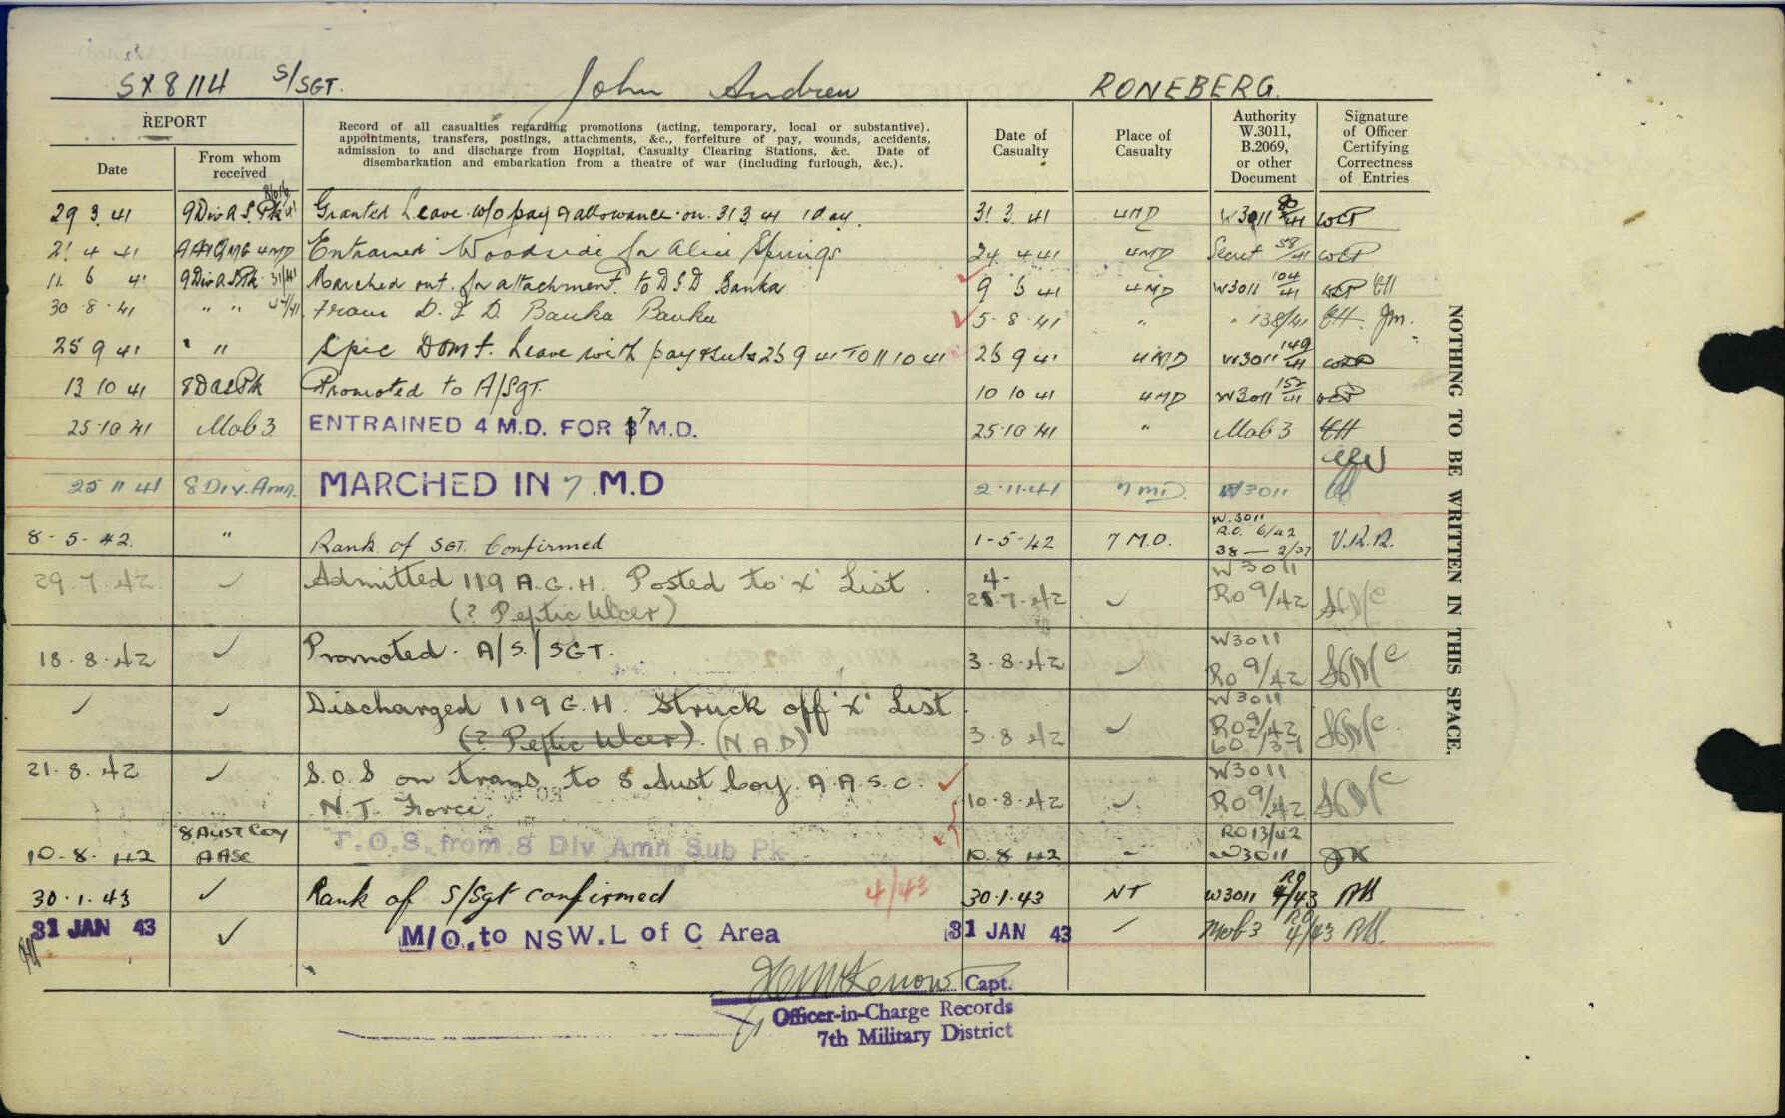 SX8114 S/SGT. John Andrew RONEBERG.
REPORT
Date
From whom received
Record of all casualties regarding promotions (acting, temporary, local or substantive),
appointments, transfers, postings, attachments, &c., forfeiture of pay, wounds, accidents,
admission to and discharge from Hospital, Casualty Clearing Stations, &c. Date of
disembarkation and embarkation from a theatre of war (including furlough, &c.).
Date of Casualty
Place of Casualty
Authority W.3011, B.2069, or other Document
Signature of Officer Certifying Correctness of Entries
29 3 41 9 Div A.S. Pk Granted Leave w/o pay & allowance on 31 3 41 1 day. 31 3 41 4MD W3011 80/41
21 4 41 4MD Entrained Woodside for Alice Springs 24 4 41 4MD Secret 58/41
11 6 41 9 Div A S Pk Marched out for attachment to D&D Banka 9 6 41 4MD W3011 104/41
30·8·41 " " From D. & D. Banka Banka 5·8·41 " " 138/41
25 9 41 " " Spec Dom t. Leave with pay & subs 26 9 41 TO 11 10 41 26 9 41 4MD W3011 149/41
13 10 41 Promoted to A/Sgt. 10 10 41 4MD W3011 152/41
25·10 41 Mob 3 ENTRAINED 4 M.D. FOR 7 M.D. 25·10 41 " Mob 3
25 11 41 8 Div. Amn. MARCHED IN 7 M.D 2·11·41 7 MD. W3011
8-5-42. " Rank of SGT. Confirmed 1-5-42 7 M.D. W.3011 R.O. 6/42 38 — 2/37 V.R.R.
29.7.42. ✓ Admitted 119 A.G.H. Posted to 'X' List. 7·42 ✓ W3011 RO 9/42
(? Peptic Ulcer)
18·8·42 ✓ Promoted. A/S/SGT. 3·8·42 ✓ W3011 RO 9/42
✓ ✓ Discharged 119 G.H. Struck off 'X' List 3·8·42 ✓ W3011 RO 9/42 60 2/37
(? Peptic Ulcer). (N.A.D)
21·8·42 ✓ S.O.S on trans to 8 Aust Coy A.A.S.C. ✓ 10·8·42 ✓ W3011 RO 9/42
N.T. Force
10-8-42 8 Aust Coy AASC T.O.S. from 8 Div Amn Sub Pk 10.8.42 - RO 13/42 W3011
30·1·43 ✓ Rank of S/Sgt confirmed 4/43 30·1·43 NT W3011 RO 4/43
31 JAN 43 ✓ M/O. to NSW. L of C Area 31 JAN 43 ✓ Mob 3 RO 4/43
Capt.
Officer-in-Charge Records
7th Military District
NOTHING TO BE WRITTEN IN THIS SPACE.